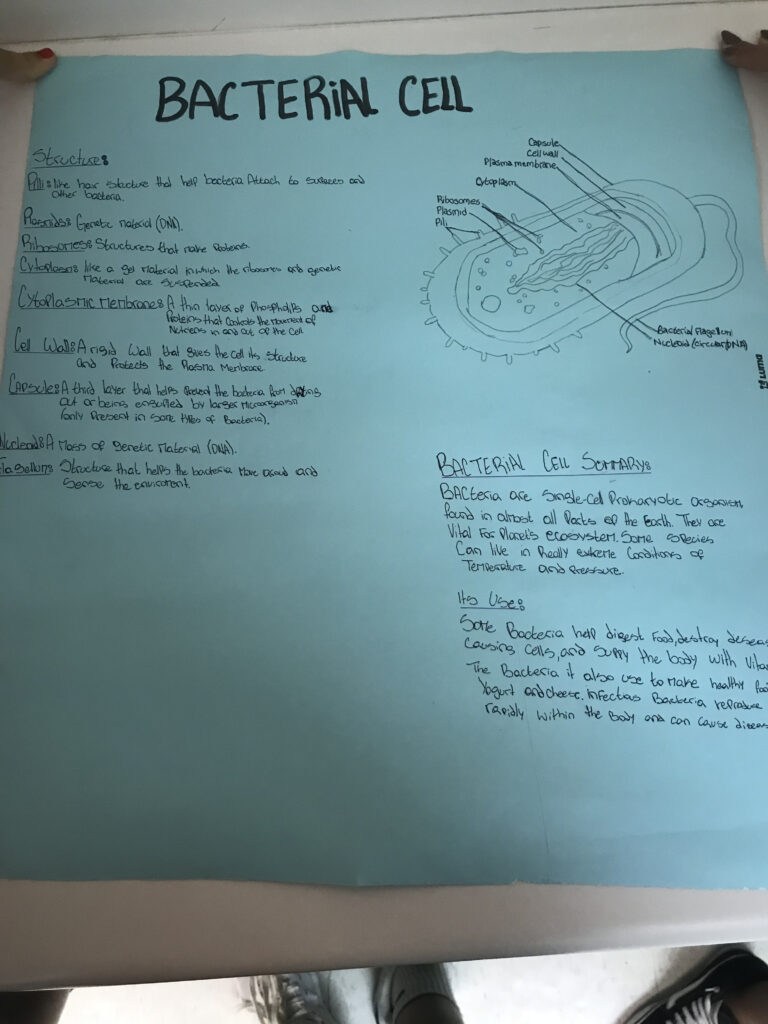 BACTERIAL CELL
Structure:
Pili: like hair structure that help bacteria Attach to surfaces and
other bacteria.
Plasmids: Genetic material (DNA).
Ribosomes: Structures that make Proteins.
Cytoplasm: like a gel material in which the ribosomes and genetic
material are suspended.
Cytoplasmic Membrane: A thin layer of Phospholipids and
Proteins that Controls the movement of
Nutriens in and out of the Cell
Cell Wall: A rigid Wall that gives the cell its Structure
and Protects the Plasma Membrane.
Capsule: A third layer that helps prevent the bacteria from drying
out or being engulfed by larger microorganism
(only Present in some types of Bacteria).
Nucleoid: A Mass of Genetic Material (DNA).
Flagellum: Structure that helps the bacteria Move around and
Sense the enviroment.
Capsule
Cell wall
Plasma membrane
Cytoplasm
Ribosomes
Plasmid
Pili
Bacterial Flagellum
Nucleoid (circular DNA)
Luma
BACTERIAL CELL SUMMARY:
BACteria are Single-Cell Prokaryotic organism
found in almost all Parts of the Earth. They are
Vital For Planet's ecosystem. Some Species
Can live in Really extreme Conditions of
Temperature and Pressure.
Its Use:
Some Bacteria help digest Food, destroy diseas
Causing Cells, and Supply the body with Vita
The Bacteria it also use to Make healthy foo
Yogurt and cheese. Infectious Bacteria reproduce
rapidly within the Body and can cause diseas